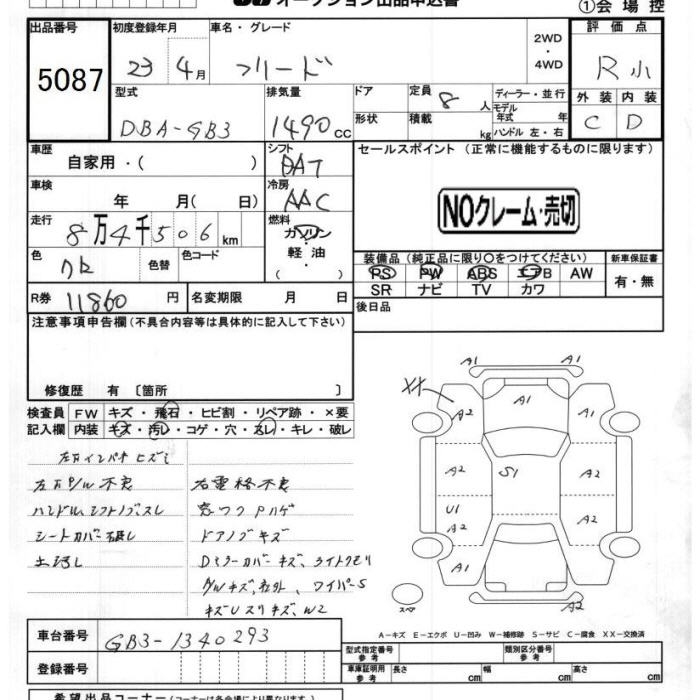 オークション出品申込書
①会 場 控
出品番号
5087
初度登録年月
23 4月
車名・グレード
フリード
2WD
・
4WD
評 価 点
R 小
外 装 内 装
C D
型式
DBA-GB3
排気量
1490 cc
ドア
形状
定員 8 人
積載 kg
ディーラー・並行
モデル
年式 年
ハンドル 左・右
車歴
自家用・( )
シフト
DAT
車検
年 月( 日)
冷房
AAC
走行
8万4千506 km
燃料
ガソリン
・
軽 油
( )
色
色替
色コード
R券 11860 円
名変期限 月 日
セールスポイント (正常に機能するものに限ります)
NOクレーム・売切
装備品 (純正品に限り〇をつけてください)
PS PW ABS エアB AW
SR ナビ TV カワ
新車保証書
有・無
後日品
注意事項申告欄 (不具合内容等は具体的に記入して下さい)
修復歴 有 〔箇所 〕
検査員 FW キズ・飛石・ヒビ割・リペア跡・×要
記入欄 内装 キズ・汚レ・コゲ・穴・スレ・キレ・破レ
左右インパネ ヒズミ
不良
ハンドル、シフトノブスレ
シートカバー破レ
右電格不良
ドアノブキズ
Dミラーカバーキズ、ライトクモリ
AWキズ、社外、ワイパーS
W2
A1
A1
XX
A2
A1
A1
A2
S1
A2
U1
A2
A2
A1
A1
A2
スペア
A-キズ E-エクボ U-凹み W-補修跡 S-サビ C-腐食 XX-交換済
車台番号 GB3-1340293
登録番号
型式指定番号
参 考
類別区分番号
参 考
車庫証明用
参 考
長さ cm
幅 cm
高さ cm
希望出品コーナー (コーナーは各会場により異なります)